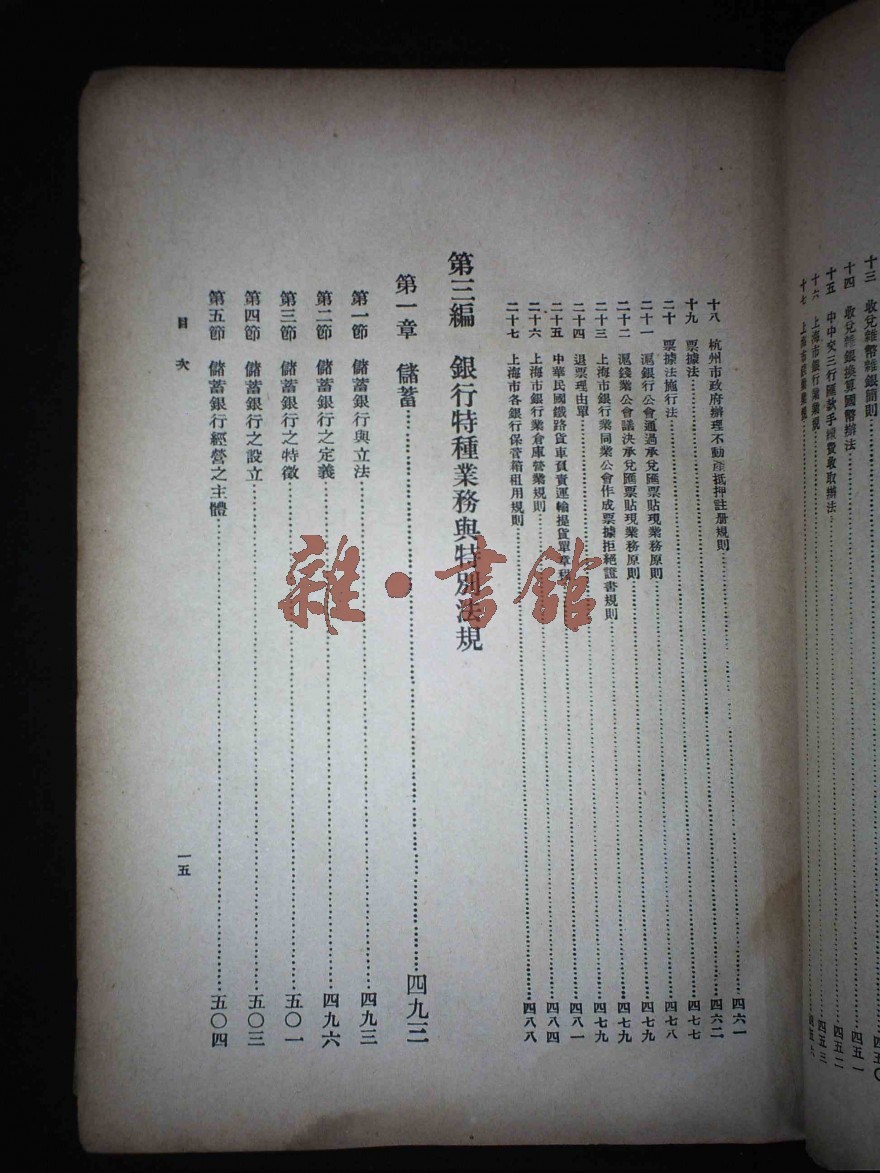 十三 收兌雜幣雜銀簡則……四五〇
十四 收兌雜銀換算國幣辦法……四五一
十五 中中交三行匯款手續費收取辦法……四五二
十六 上海市銀行業業規……四五三
十七 上海市
十八 杭州市政府辦理不動產抵押註册規則……四六一
十九 票據法……四六二
二十 票據法施行法……四七七
二十一 滬銀行公會通過承兌匯票貼現業務原則……四七八
二十二 滬錢業公會議決承兌匯票貼現業務原則……四七九
二十三 上海市銀行業同業公會作成票據拒絕證書規則……四七九
二十四 退票理由單……四七九
二十五 中華民國鐵路貨車負責運輸提貨單章程……四八一
二十六 上海市銀行業倉庫營業規則……四八四
二十七 上海市各銀行保管箱租用規則……四八八
第三編 銀行特種業務與特別法規
第一章 儲蓄……四九三
第一節 儲蓄銀行與立法……四九三
第二節 儲蓄銀行之定義……四九六
第三節 儲蓄銀行之特徵……五〇一
第四節 儲蓄銀行之設立……五〇三
第五節 儲蓄銀行經營之主體……五〇四
目次 一五
雜·書館